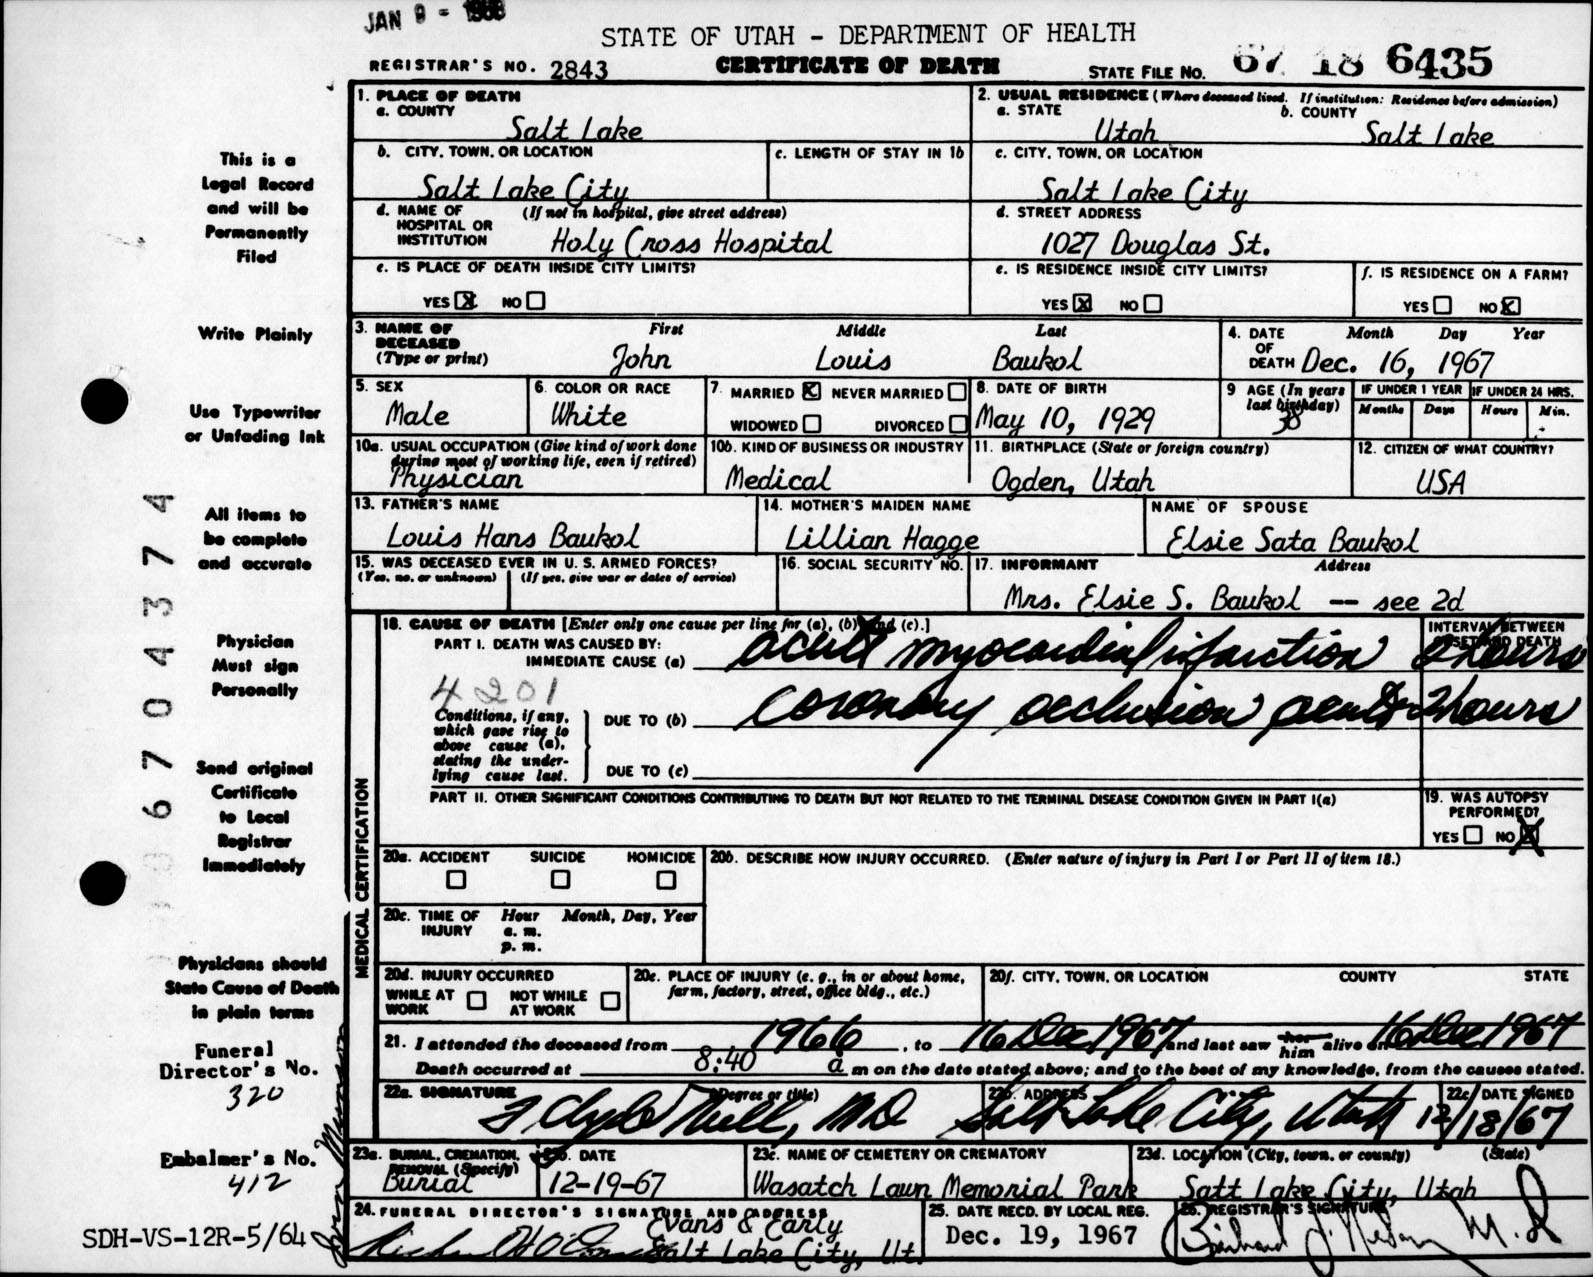 JAN 9 - 1968
STATE OF UTAH - DEPARTMENT OF HEALTH
REGISTRAR'S NO. 2843 CERTIFICATE OF DEATH STATE FILE NO. 67 18 6435
1. PLACE OF DEATH
a. COUNTY
Salt Lake
2. USUAL RESIDENCE (Where deceased lived. If institution: Residence before admission)
a. STATE b. COUNTY
Utah Salt Lake
b. CITY, TOWN, OR LOCATION c. LENGTH OF STAY IN 1b
Salt Lake City
c. CITY, TOWN, OR LOCATION
Salt Lake City
d. NAME OF HOSPITAL OR INSTITUTION (If not in hospital, give street address)
Holy Cross Hospital
d. STREET ADDRESS
1027 Douglas St.
e. IS PLACE OF DEATH INSIDE CITY LIMITS?
YES X NO
e. IS RESIDENCE INSIDE CITY LIMITS?
YES X NO
f. IS RESIDENCE ON A FARM?
YES NO X
3. NAME OF DECEASED (Type or print) First Middle Last
John Louis Baukol
4. DATE OF DEATH Month Day Year
Dec. 16, 1967
5. SEX
Male
6. COLOR OR RACE
White
7. MARRIED X NEVER MARRIED
WIDOWED DIVORCED
8. DATE OF BIRTH
May 10, 1929
9 AGE (In years last birthday)
38
IF UNDER 1 YEAR IF UNDER 24 HRS.
Months Days Hours Min.
10a. USUAL OCCUPATION (Give kind of work done during most of working life, even if retired)
Physician
10b. KIND OF BUSINESS OR INDUSTRY
Medical
11. BIRTHPLACE (State or foreign country)
Ogden, Utah
12. CITIZEN OF WHAT COUNTRY?
USA
13. FATHER'S NAME
Louis Hans Baukol
14. MOTHER'S MAIDEN NAME
Lillian Hagge
NAME OF SPOUSE
Elsie Sata Baukol
15. WAS DECEASED EVER IN U. S. ARMED FORCES?
(Yes, no, or unknown) (If yes, give war or dates of service)
16. SOCIAL SECURITY NO.
17. INFORMANT Address
Mrs. Elsie S. Baukol -- see 2d
MEDICAL CERTIFICATION
18. CAUSE OF DEATH [Enter only one cause per line for (a), (b) and (c).]
INTERVAL BETWEEN ONSET AND DEATH
PART I. DEATH WAS CAUSED BY:
IMMEDIATE CAUSE (a) acute myocardial infarction 2 hours
4201
Conditions, if any, which gave rise to above cause (a), stating the underlying cause last.
DUE TO (b) coronary occlusion acute 2 hours
DUE TO (c)
PART II. OTHER SIGNIFICANT CONDITIONS CONTRIBUTING TO DEATH BUT NOT RELATED TO THE TERMINAL DISEASE CONDITION GIVEN IN PART I(a)
19. WAS AUTOPSY PERFORMED?
YES NO X
20a. ACCIDENT SUICIDE HOMICIDE
20b. DESCRIBE HOW INJURY OCCURRED. (Enter nature of injury in Part I or Part II of item 18.)
20c. TIME OF INJURY Hour Month, Day, Year
a. m.
p. m.
20d. INJURY OCCURRED
WHILE AT WORK NOT WHILE AT WORK
20e. PLACE OF INJURY (e. g., in or about home, farm, factory, street, office bldg., etc.)
20f. CITY, TOWN, OR LOCATION COUNTY STATE
21. I attended the deceased from 1966, to 16 Dec 1967 and last saw her him alive on 16 Dec 1967
Death occurred at 8:40 a m on the date stated above; and to the best of my knowledge, from the causes stated.
22a. SIGNATURE (Degree or title)
M D
22b. ADDRESS
Salt Lake City, Utah
22c. DATE SIGNED
12/18/67
23a. BURIAL, CREMATION, REMOVAL (Specify)
Burial
23b. DATE
12-19-67
23c. NAME OF CEMETERY OR CREMATORY
Wasatch Lawn Memorial Park
23d. LOCATION (City, town, or county) (State)
Satt Lake City, Utah
24. FUNERAL DIRECTOR'S SIGNATURE AND ADDRESS
Evans & Early
Salt Lake City, Ut.
25. DATE RECD. BY LOCAL REG.
Dec. 19, 1967
26. REGISTRAR'S SIGNATURE
M.D
This is a
Legal Record
and will be
Permanently
Filed
Write Plainly
Use Typewriter
or Unfading Ink
All items to
be complete
and accurate
Physician
Must sign
Personally
Send original
Certificate
to Local
Registrar
Immediately
Physicians should
State Cause of Death
in plain terms
Funeral
Director's No.
320
Embalmer's No.
412
SDH-VS-12R-5/64
6704374